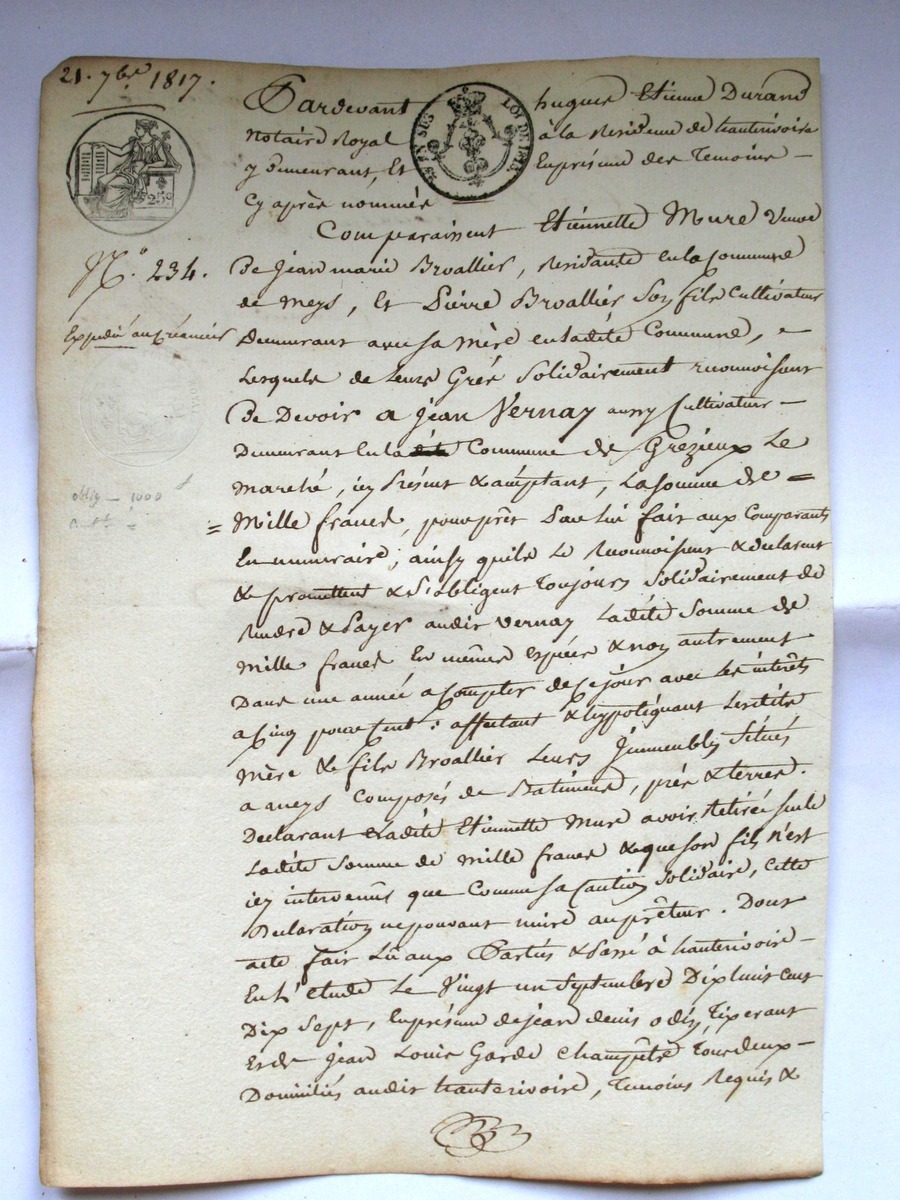 21. 7bre 1817.
25c
LOI DE 1816
N.° 234.
Expedié au Créancier
oblig — 1000
Pardevant hugues Etienne Durand
Notaire Royal à la Residence de hauterivoire
y demeurant, Et En présence des Temoins —
Cy après nommés
Comparaissent Etiennette Mure Veuve
De Jean marie Broallier, Residante en la Commune
de Meys, Et Pierre Broallier Son fils Cultivateur
Demeurant avec sa Mère en ladite Commune,
Lesquels de Leurs Grés Solidairement reconnoissent
De Devoir a Jean Vernay aussy Cultivateur —
Demeurant en la Commune de Grezieux Le
Marché, icy Présent & acceptant, La somme de =
= Mille francs, pour prêt Par Lui fait aux Comparants
En numeraire, ainsy qu'ils Le Reconnoissent & declarent
& promettent & S'obligent Toujours Solidairement de
Rendre & Payer audit Vernay Ladite Somme de
Mille francs En mêmes Espèces & non autrement
Dans une année a Compter de Ce jour avec Les interêts
a Cinq pour Cent : affectant & hypotéquant Lesdits
Mère & fils Broallier Leurs Jmmeubles Situés
a meys Composés de Batiments, prés & terres.
Declarant Ladite Etiennette Mure avoir Retirée seule
Ladite Somme de Mille francs & que son fils n'est
icy intervenus que Comme sa Caution Solidaire, Cette
Declaration ne pouvant nuire au prêteur. Dont
acte fait Lû aux Parties & Passé à hauterivoire —
En L'etude Le Vingt un Septembre Dix huit cent
Dix Sept, En présence de jean denis odin, Tixerant
Et de Jean Louis Garde Champêtre Tous deux —
Domiciliés audit hauterivoire, Temoins Requis &